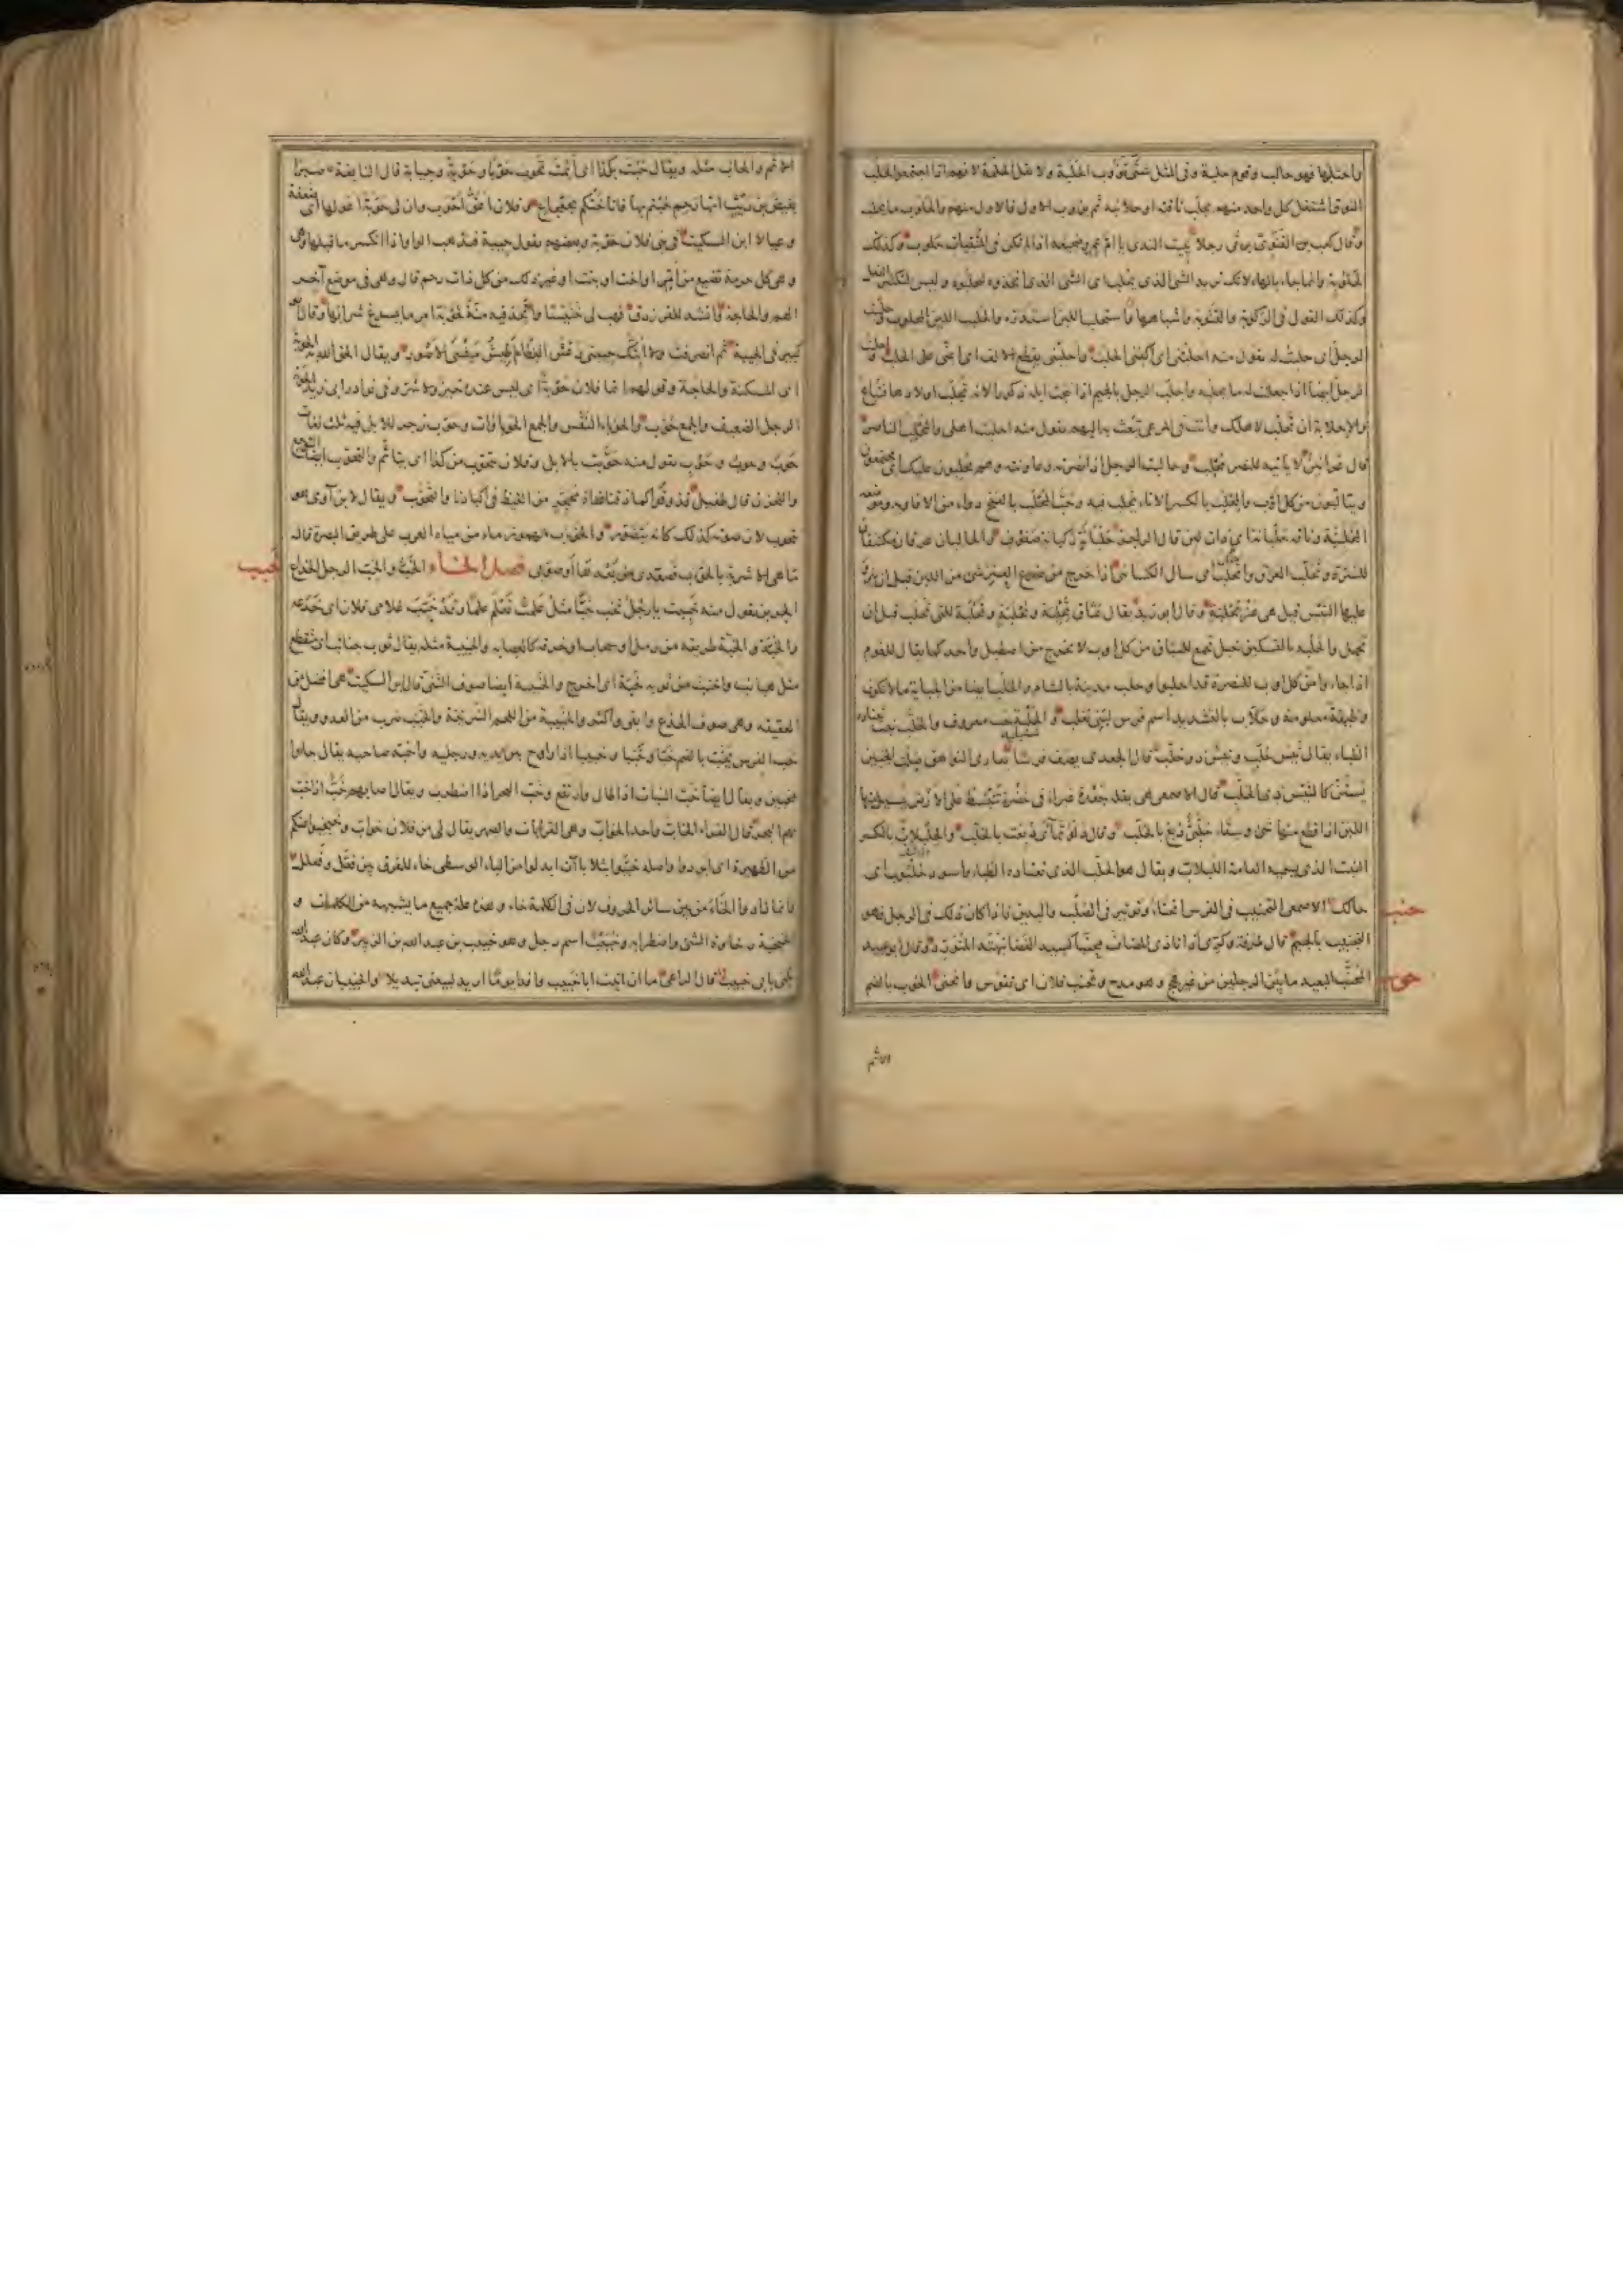 واحتلبها فهو حالب وقوم حلبة وفى المثل شتى تؤوب الحلبة ولا تقل الحلمة لانهم اذا اجتمعوا لحلب
النوق اشتغل كل واحد منهم بحلب ناقته او حلائبه ثم يؤوب الاول فالاول منهم والحلوب ما يحلب
وقال كعب بن سعد الغنوى يرثى رجلا يبيت الندى يا ام عمرو ضجيعه اذا لم يكن فى المنقيات حلوب وكذلك
الحلوبة وانما جاء بالهاء لانك تريد الشئ الذى يحلب اى الشئ الذى اتخذوه ليحلبوه وليس لتكثير الفعل
وكذلك القول فى الركوبة والقتوبة واشباهها واستحلب اللبن استدره والحلب اللبن المحلوب
الرجل اى حلبت له تقول منه احلبنى اى اكفنى الحلب واحلبنى بقطع الالف اى اعنى على الحلب واحلبت
الرجل ايضا اذا جعلت له ما يحلبه واحلب الرجل بالجيم اذا نتجت ابله ذكورا لانه تجلب اولادها فتباع
والاحلابة ان تحلب لاهلك وانت فى المرعى تبعث به اليهم تقول منه احلبت اهلى والمحلب الناصر
قال لا يأتيه للنصر محلب وحالبت الرجل اذا نصرته وعاونته وهم يحلبون عليك اى يجتمعون
ويتألبون من كل اوب والمحلب بالكسر الاناء يحلب فيه وحب المحلب بالفتح دواء من الافاويه وموضعه
المحلبية وناقة حلبانة اى ذات لبن قال الراجز حلبانة ركبانة صفوف والحالبان عرقان مكتنفان
للسرة وتحلب العرق وانحلب اى سال الكسائى اذا خرج من ضرع العنز شئ من اللبن قبل ان ينزو
عليها التيس قيل هى عنز تحلبة وقال ابو زيد يقال عناق تحلبة وتحلبة وتحلبة للتى تحلب قبل ان
تحمل والحلبة بالتسكين خيل تجمع للسباق من كل اوب لا تخرج من اصطبل واحد كما يقال للقوم
اذا جاءوا من كل اوب للنصرة قد احلبوا وحلب مدينة بالشام والحلب ايضا من الجباية ما لا تكون
وظيفة معلومة وحلاب بالتشديد اسم فرس لبنى تغلب والحلبة حب معروف والحلب نبت تعتاده
الظباء يقال تيس حلب وتيس ذو حلب قال الجعدى يصف فرسا بعارى النواهق صلت الجبين
يستن كالتيس ذى الحلب قال الاصمعى هى بقلة جعدة غبراء فى خضرة تنبسط على الارض يسيل منها
اللبن اذا قطع منها شئ وسقاء حلبى دبغ بالحلب وقال دلو تمأى دبغت بالحلب والحلبلاب بالكسر
النبت الذى يسميه العامة اللبلاب ويقال هو الحلب الذى تعتاده الظباء واسود حلبوب اى
حالك الاصمعى التحنيب فى الفرس انحناء وتوتير فى الصلب واليدين فاذا كان ذلك فى الرجل فهو
حنب
التجنيب بالجيم قال طرفة وكرى اذا نادى المضاف محنبا كسيد الغضا نبهته المتورد وقال ابو عبيد
المحنب البعيد ما بين الرجلين من غير فحج وهو مدح وتحنب فلان اى تقوس وانحنى الحوب بالضم
حوب
الاثم
الاثم والحاب مثله ويقال حبت بكذا اى اثمت تحوب حوبا وحوبة وحيابة قال النابغة صبرا
بغيض بن ريث انها رحم حبتم بها فاناختكم بجعجاع وفلان اعق واحوب وان لى حوبة اعولها اى ضعفة
وعيالا ابن السكيت لى فى بنى فلان حوبة وبعضهم يقول حيبة فتذهب الواو اذا انكسر ما قبلها
وهى كل حرمة تضيع من ام او اخت او بنت او غير ذلك من كل ذات رحم قال وهى فى موضع آخر
الهم والحاجة وانشد للفرزدق فهب لى خنيسا واتخذ فيه منة لحوبة ام ما يسوغ شرابها وقال ابو
كبير فى الحيبة ثم انصرفت ولا ابثك حيبتى رعش العظام اطيش مشى الاصور ويقال الحق الله به الحوبة
اى المسكنة والحاجة وقولهم انما فلان حوبة اى ليس عنده خير ولا شر وفى نوادر ابى زيد الحوبة
الرجل الضعيف والجمع حوب والحوباء النفس والجمع الحوباوات وحوب زجر للابل فيه ثلث لغات
حوب وحوب وحوب تقول منه حوبت بالابل وفلان يتحوب من كذا اى يتاثم والتحوب ايضا التوجع
والتحزن قال طفيل فذوقوا كما ذقنا غداة محجر من الغيظ فى اكبادنا والتحوب ويقال لابن آوى هو
يتحوب لان صوته كذلك كانه يتضور والحوأب مهموز ماء من مياه العرب على طريق البصرة قال
ما هى الا شربة بالحوأب فصعدى من بعدها او صوبى فصل الخاء الخب والخب الرجل الخداع
خبب
الجربز تقول منه خببت يا رجل تخب خبا مثل علمت تعلم علما وقد خبب غلامى فلان اى خدعه
والخبة والخبة طريقة من رمل او سحاب او خرقة كالعصابة والخبيبة مثله يقال ثوب خبائب اى متقطع
مثل هبائب واختب من ثوبه خبة اى اخرج والخبيبة ايضا صوف الثنى قال ابن السكيت هى افضل من
العقيقة وهى صوف الجذع وابقى واكثر والخبيبة من اللحم الشريحة والخبب ضرب من العدو ويقال
خب الفرس يخب بالضم خبا وخببا وخبيبا اذا راوح بين يديه ورجليه واخبه صاحبه يقال جاءوا
مخبين ويقال ايضا خب النبات اذا طال وارتفع وخب البحر اذا اضطرب ويقال اصابهم خب اذا خب
بهم البحر قال الفراء الخاب واحد الخواب وهى القرابات والصهر يقال لى من فلان خواب وخبخبوا عنكم
من الظهيرة اى ابردوا واصله خببوا بثلاث باآت ابدلوا من الباء الوسطى خاء للفرق بين فعلل وفعل
وانما زادوا الخاء من بين سائر الحروف لان فى الكلمة خاء وهذه علة جميع ما يشبهه من الكلمات و
الخبخبة رخاوة الشئ واضطرابه وخبيب اسم رجل وهو خبيب بن عبد الله بن الزبير وكان عبد الله
يكنى بابى خبيب قال الراعى ما ان اتيت ابا خبيب وافدا يوما اريد لبيعتى تبديلا والخبيبان عبد الله